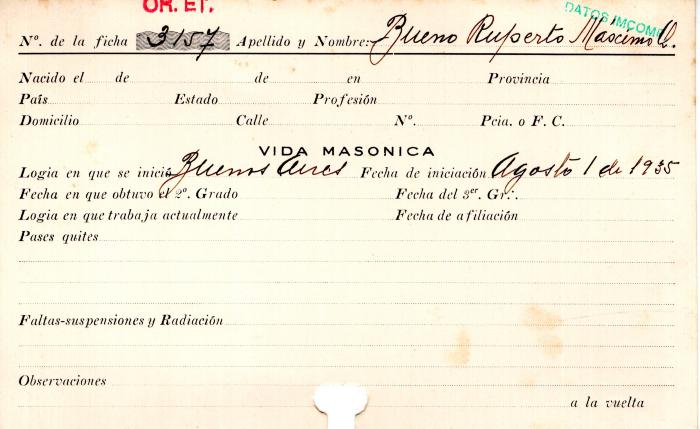 OR. ET.
DATOS INCOMP
Nº. de la ficha 3157 Apellido y Nombre: Bueno Ruperto Máximo Q.
Nacido el de de en Provincia
País Estado Profesión
Domicilio Calle Nº. Pcia. o F. C.
VIDA MASONICA
Logia en que se inició Buenos Aires Fecha de iniciación Agosto 1 de 1935
Fecha en que obtuvo el 2º. Grado Fecha del 3er Gr∴
Logia en que trabaja actualmente Fecha de afiliación
Pases quites
Faltas-suspensiones y Radiación
Observaciones
a la vuelta